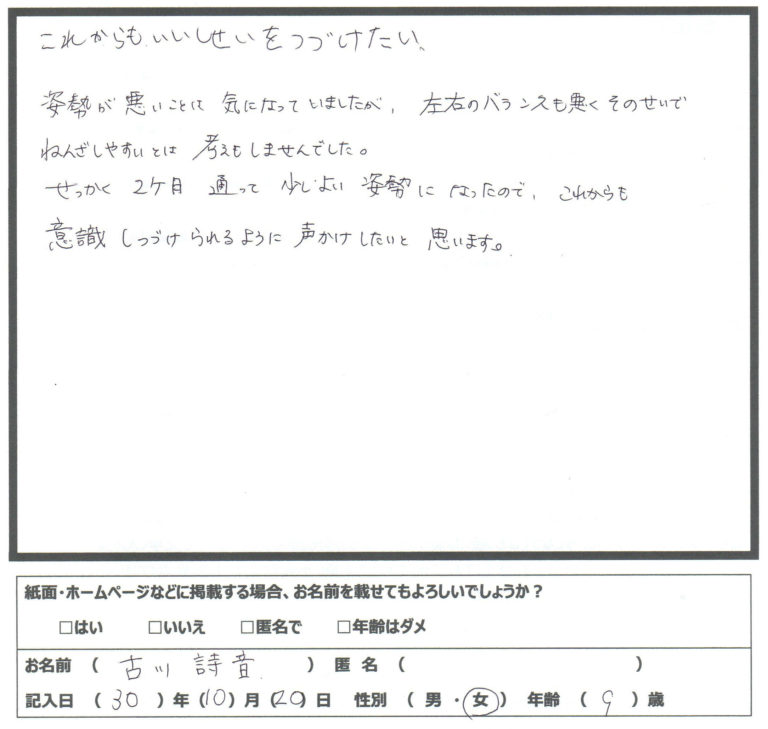 これからもいいしせいをつづけたい、
姿勢が悪いことは気になっていましたが、左右のバランスも悪くそのせいで
ねんざしやすいとは考えもしませんでした。
せっかく2ケ月通って少しよい姿勢になったので、これからも
意識しつづけられるように声かけしたいと思います。
紙面・ホームページなどに掲載する場合、お名前を載せてもよろしいでしょうか？
□はい □いいえ □匿名で □年齢はダメ
お名前 （ 古川 詩音 ） 匿 名 （ ）
記入日 （ 30 ）年（10）月（20）日 性別 （ 男 ・ 女 ） 年齢 （ 9 ）歳